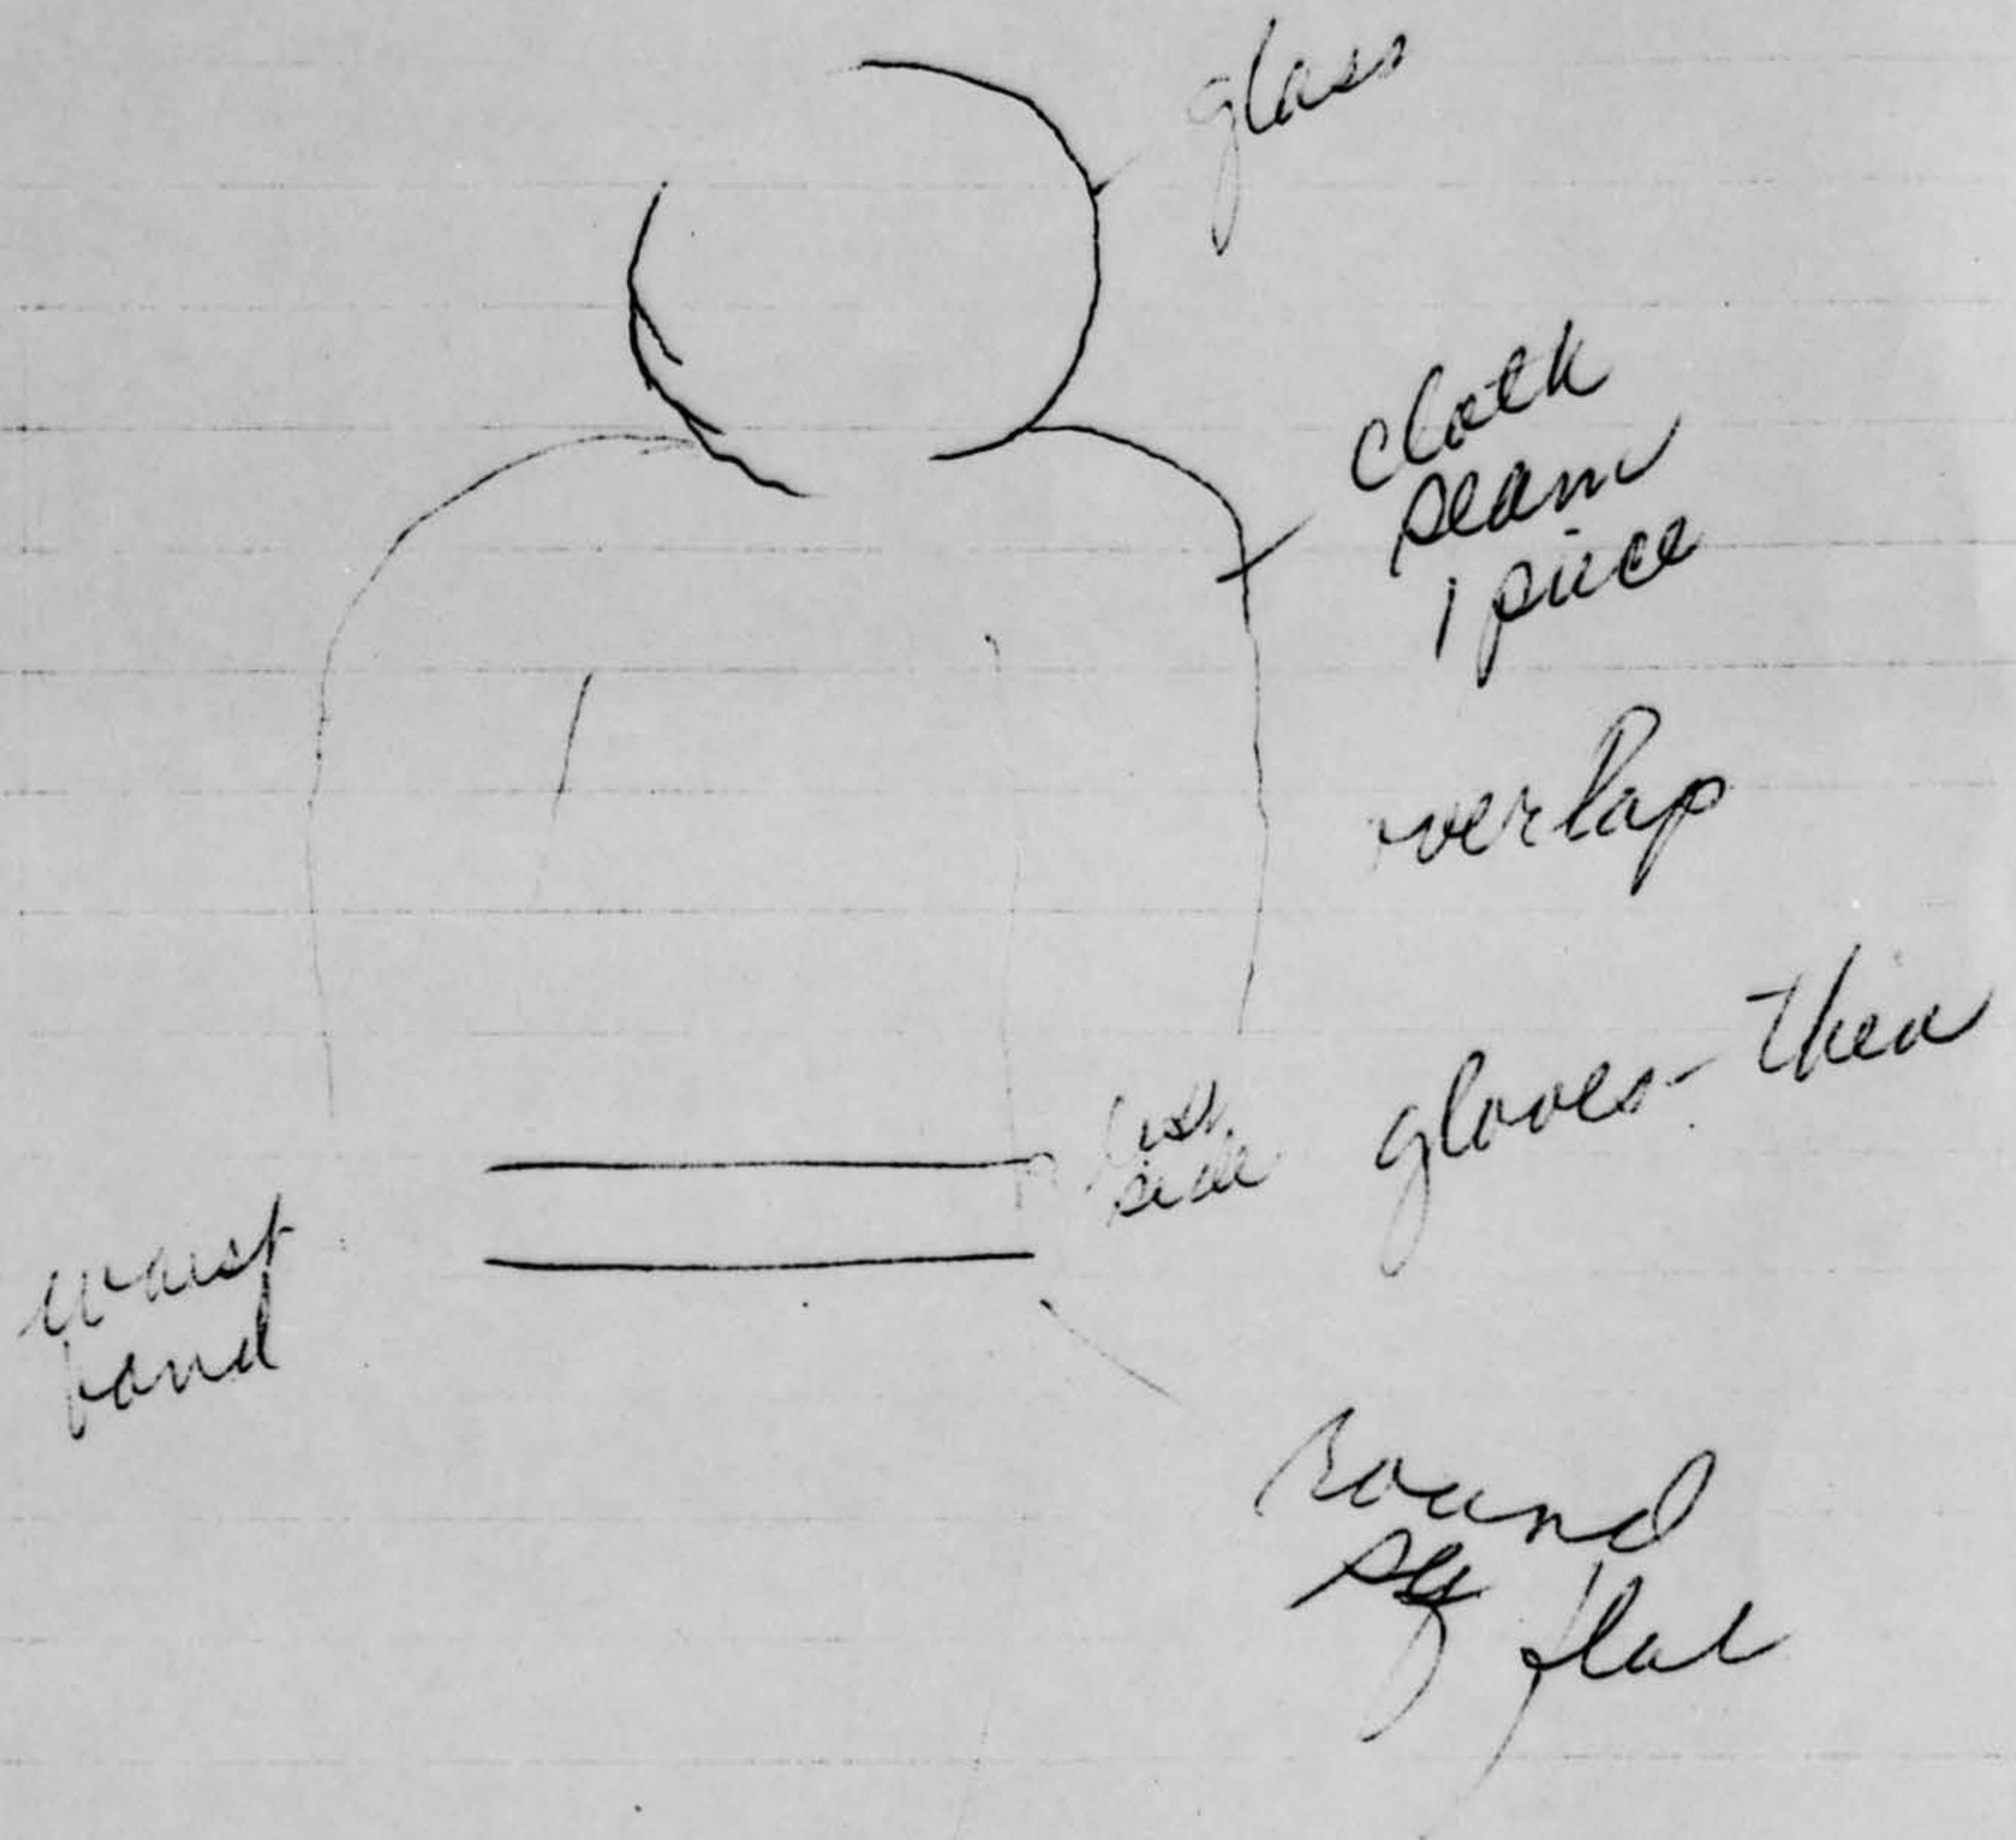 glass
cloth
seam
1 piece
overlap
gloves - then
side
waist
band
round
flat